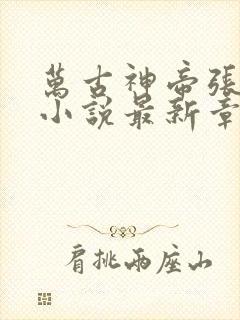 萬古神帝張
小說最新章
肩挑兩座山